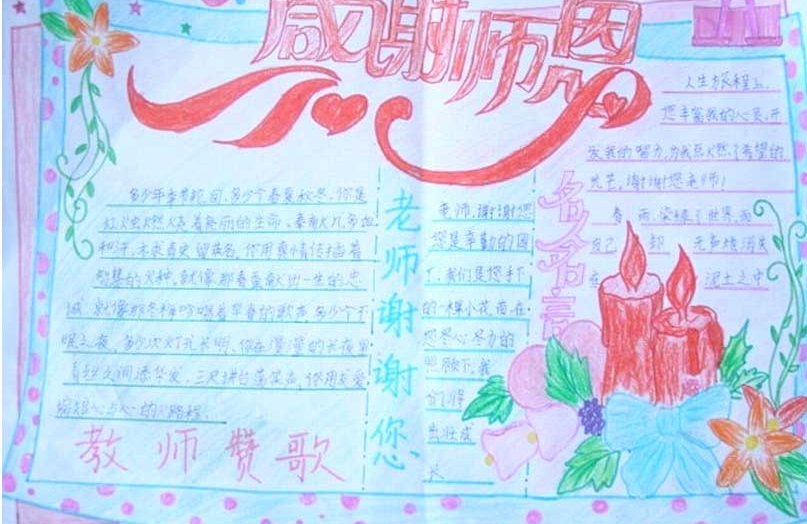 感谢师恩
多少年季节轮回，多少个春夏秋冬，你是
红烛燃烧着亮丽的生命，奉献几多
利开，不求青史留英名，你用真情传播着
智慧的火种。就像那春蚕献出一生的忠
诚，就像那冬梅吟唱着早春的歌 多少个不
眠之夜，多少次灯光长明，你在漫漫的长夜里
青丝之间添华发，三尺讲台荡笑 你用友爱
缩短心与心的路程。
教师赞歌
老师谢谢您
老师，谢谢您
您是辛勤的园
丁，我们是您手下
的一棵小花苗在
您尽心尽力的
照顾下，我
们 得
茁壮成
长
名人名言
人生旅程上，
您丰富我的心灵，开
发我的智力，为我点燃了希望的
光芒，谢谢您老师！
春雨，染绿了世界，而
自己 却 无声地消失
在 泥土之中